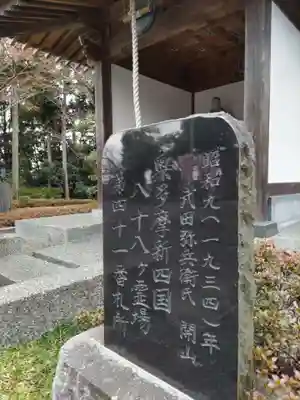 昭和九（一九三四）年
武田弥兵衛氏 開山
奥多摩新四国
八十八ヶ霊場
第四十一番札所